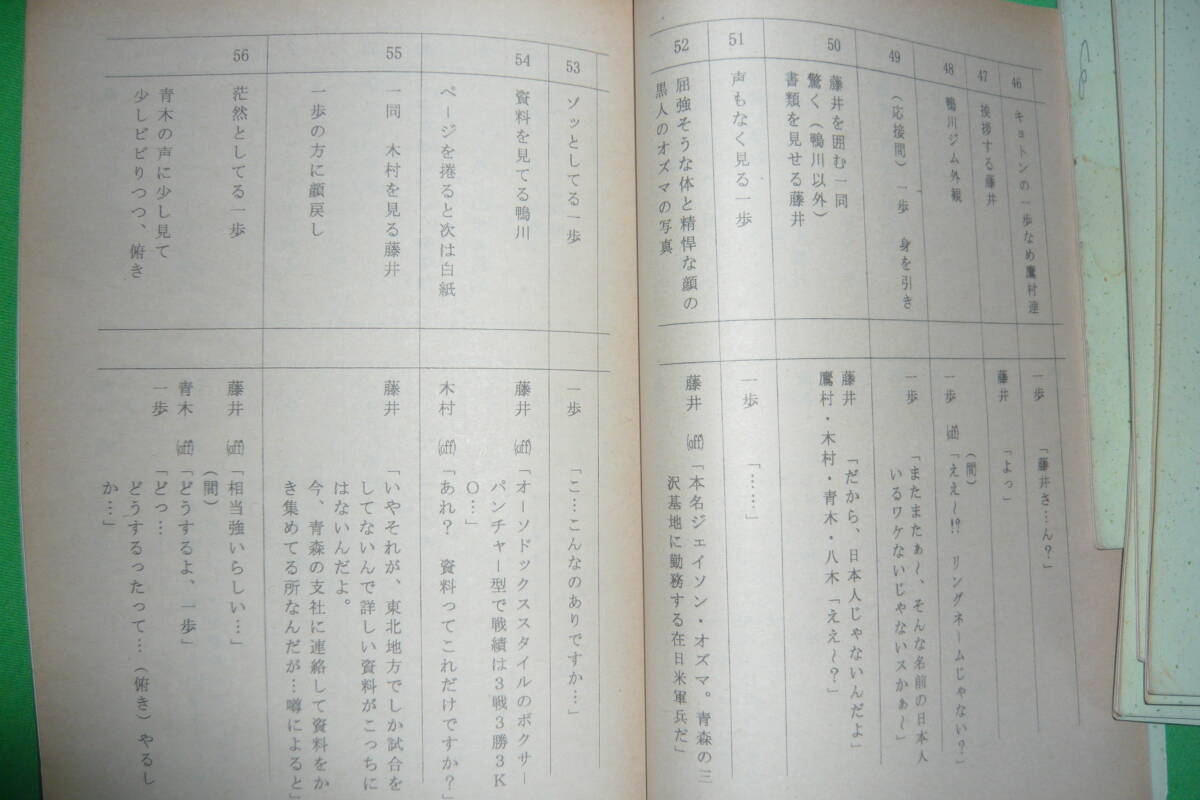 46
キョトンの一歩なめ鷹村達
一歩　「藤井さ…ん？」
47
挨拶する藤井
藤井　「よっ」
48
鴨川ジム外観
(間)
一歩　(off)　「ええ～!?　リングネームじゃない？」
49
(応接間)　一歩　身を引き
一歩　「またまたぁ～、そんな名前の日本人
いるワケないじゃないスかぁ～」
50
藤井を囲む一同
驚く（鴨川以外）
書類を見せる藤井
藤井　「だから、日本人じゃないんだよ」
鷹村・木村・青木・八木「ええ～？」
51
声もなく見る一歩
一歩　「……」
52
屈強そうな体と精悍な顔の
黒人のオズマの写真
藤井　(off)「本名ジェイソン・オズマ。青森の三
沢基地に勤務する在日米軍兵だ」
53
ゾッとしてる一歩
一歩　「こ…こんなのありですか…」
54
資料を見てる鴨川
ページを捲ると次は白紙
藤井　(off)「オーソドックススタイルのボクサー
パンチャー型で戦績は３戦３勝３Ｋ
Ｏ…」
木村　(off)「あれ？　資料ってこれだけですか？」
55
一同　木村を見る藤井
一歩の方に顔戻し
藤井　「いやそれが、東北地方でしか試合を
してないんで詳しい資料がこっちに
はないんだよ。
今、青森の支社に連絡して資料をか
き集めてる所なんだが…噂によると」
56
茫然としてる一歩
青木の声に少し見て
少しビビりつつ、俯き
藤井　(off)「相当強いらしい…」
(間)
青木　(off)「どうするよ、一歩」
一歩　「どっ…
どうするったって…（俯き）やるし
か…」